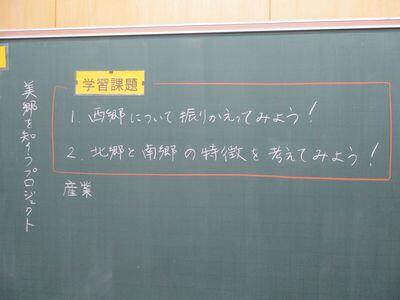 美郷を知ろうプロジェクト
学習課題
1. 西郷について振りかえってみよう!
2. 北郷と南郷の特徴を考えてみよう!
産業